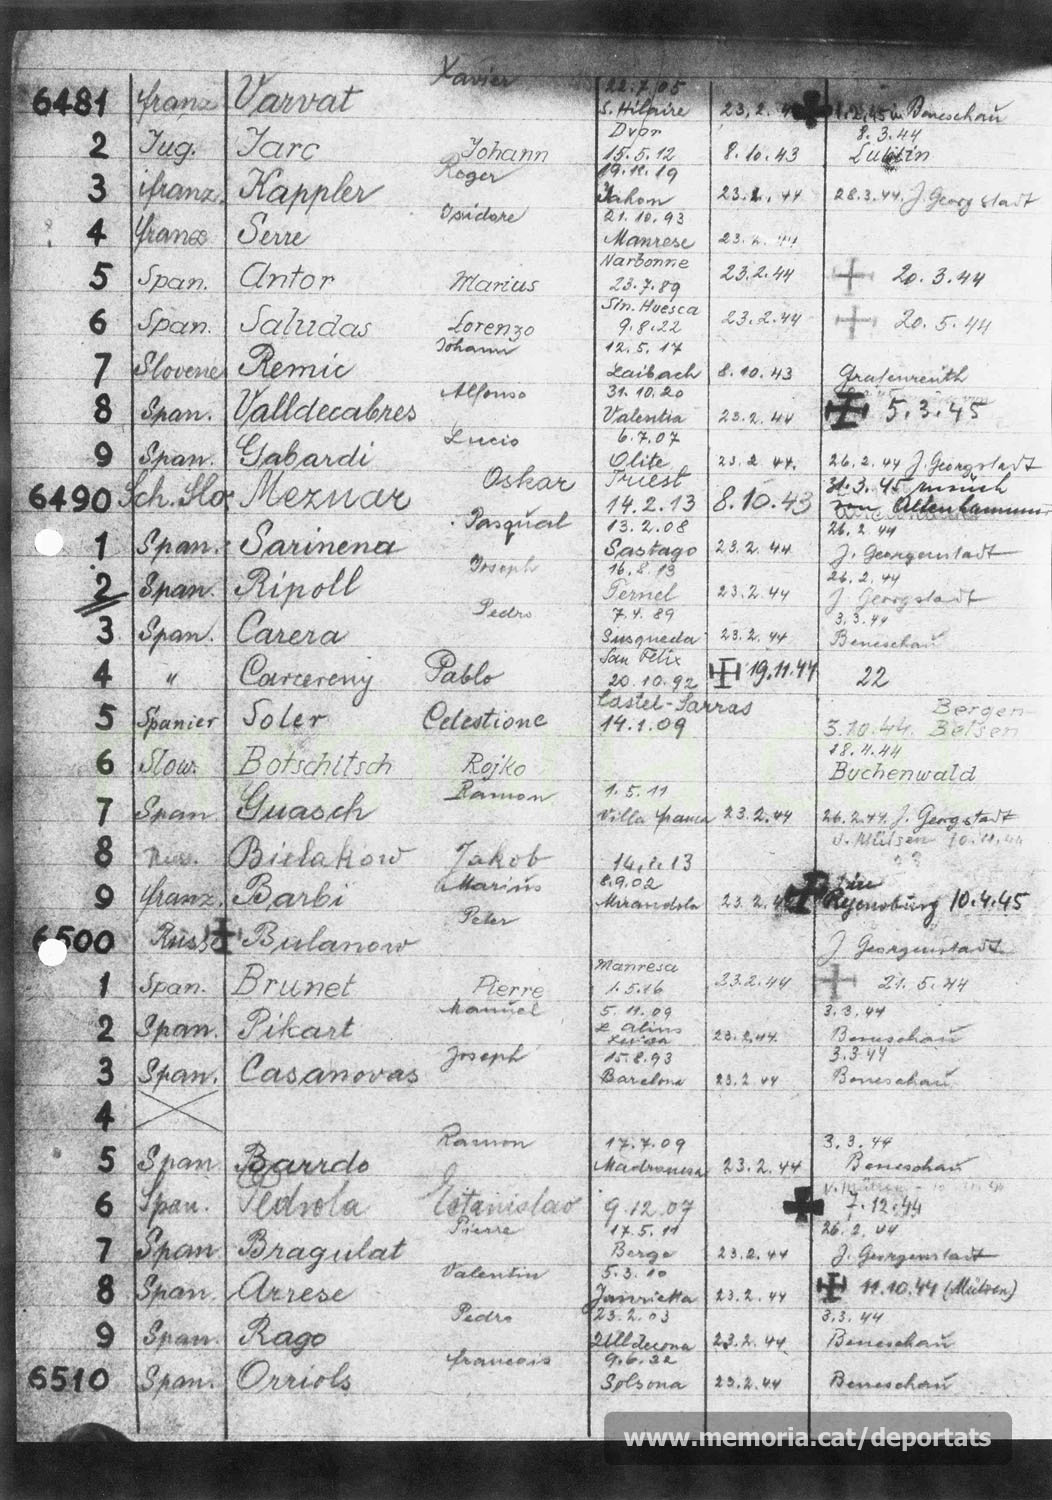 6481 franz Varvat Xavier 22.7.05 S. Hilaire 23.2. Beneschau
2 Jug. Jarc Johann Dvor 15.5.12 8.10.43 8.3.44 Lublin
3 franz. Kappler Roger 19.11.19 23.2.44 28.3.44. J. Georgstadt
4 franz Serre Osidore 21.10.93 Manrese 23.2.44
5 Span. Antor Marius Narbonne 23.7.89 23.2.44 20.3.44
6 Span. Saludas Lorenzo Stn. Huesca 9.8.22 23.2.44 20.5.44
7 Slovene Remic Johann 12.5.17 Laibach 8.10.43 Grafenreuth
8 Span. Valldecabres Alfonso 31.10.20 Valentia 23.2.44 5.3.45
9 Span. Gabardi Lucio 6.7.07 Olite 23.2.44. 26.2.44 J. Georgstadt
6490 Sch. Slo. Meznar Oskar Triest 14.2.13 8.10.43 31.3.45 zurück von Altenhammer
1 Span. Sarinena Pasqual 13.2.08 Sastago 23.2.44 26.2.44 J. Georgenstadt
2 Span. Ripoll Joseph 16.8.13 Fernel 23.2.44 26.2.44 J. Georgstadt
3 Span. Carera Pedro 7.4.89 Susqueda 23.2.44 3.3.44 Beneschau
4 " Carcereny Pablo San Felix 20.10.92 19.11.44 22
5 Spanier Soler Celestione Castel-Sarras 14.1.09 3.10.44. Bergen-Belsen
6 Slow. Botschitsch Rojko 18.4.44 Buchenwald
7 Span Guasch Ramon 1.5.11 Villa franca 23.2.44 26.2.44. J. Georgstadt
8 Russ. Bielakow Jakob 14.1.13 v. Mülsen 10.11.44 22
9 franz. Barbi Marius 8.9.02 Mirandola 23.2. in Regensburg 10.4.45
6500 Russe Bulanow Peter J Georgenstadt
1 Span. Brunet Pierre Manresa 1.5.16 23.2.44 21.5.44
2 Span. Pikart Manuel 5.11.09 23.2.44. 3.3.44 Beneschau
3 Span. Casanovas Joseph 15.8.93 Barcelona 23.2.44 3.3.44 Beneschau
4
5 Span Barrdo Ramon 17.7.09 Madronesa 23.2.44 3.3.44 Beneschau
6 Span. Pedrola Estanislao 9.12.07 v. Mülsen 7.12.44
7 Span Bragulat Pierre 17.5.11 Berge 23.2.44 26.2.44 J. Georgenstadt
8 Span. Arrese Valentin 5.3.10 23.2.44 11.10.44 (Mülsen)
9 Span. Rago Pedro 23.2.03 Ulldecona 23.2.44 3.3.44 Beneschau
6510 Span. Orriols francois 9.6.22 Solsona 23.2.44 Beneschau
www.memoria.cat/deportats